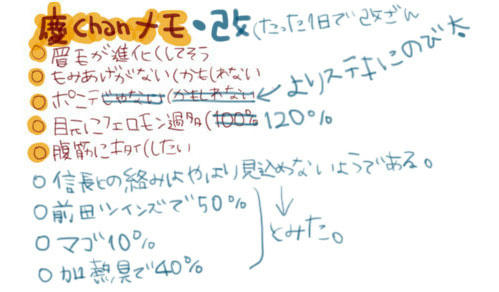 慶Chanメモ・改(たった1日で改ざん
○眉毛が進化してそう
○もみあげがない(かもしれない
○ポニテじゃない(かもしれない ← よりステキにのび太
○目元にフェロモン過多(100% 120%
○腹筋にキタイしたい
○信長との絡みはやはり見込めないようである。
○前田ツインズで50%
○マゴ10%
○加熱具で40%
→とみた。